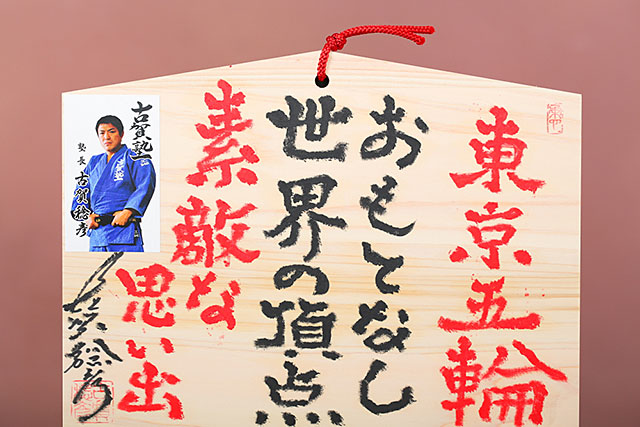 東京五輪
おもてなし
世界の頂点
素敵な
思い出
古賀塾
塾長 古賀稔彦